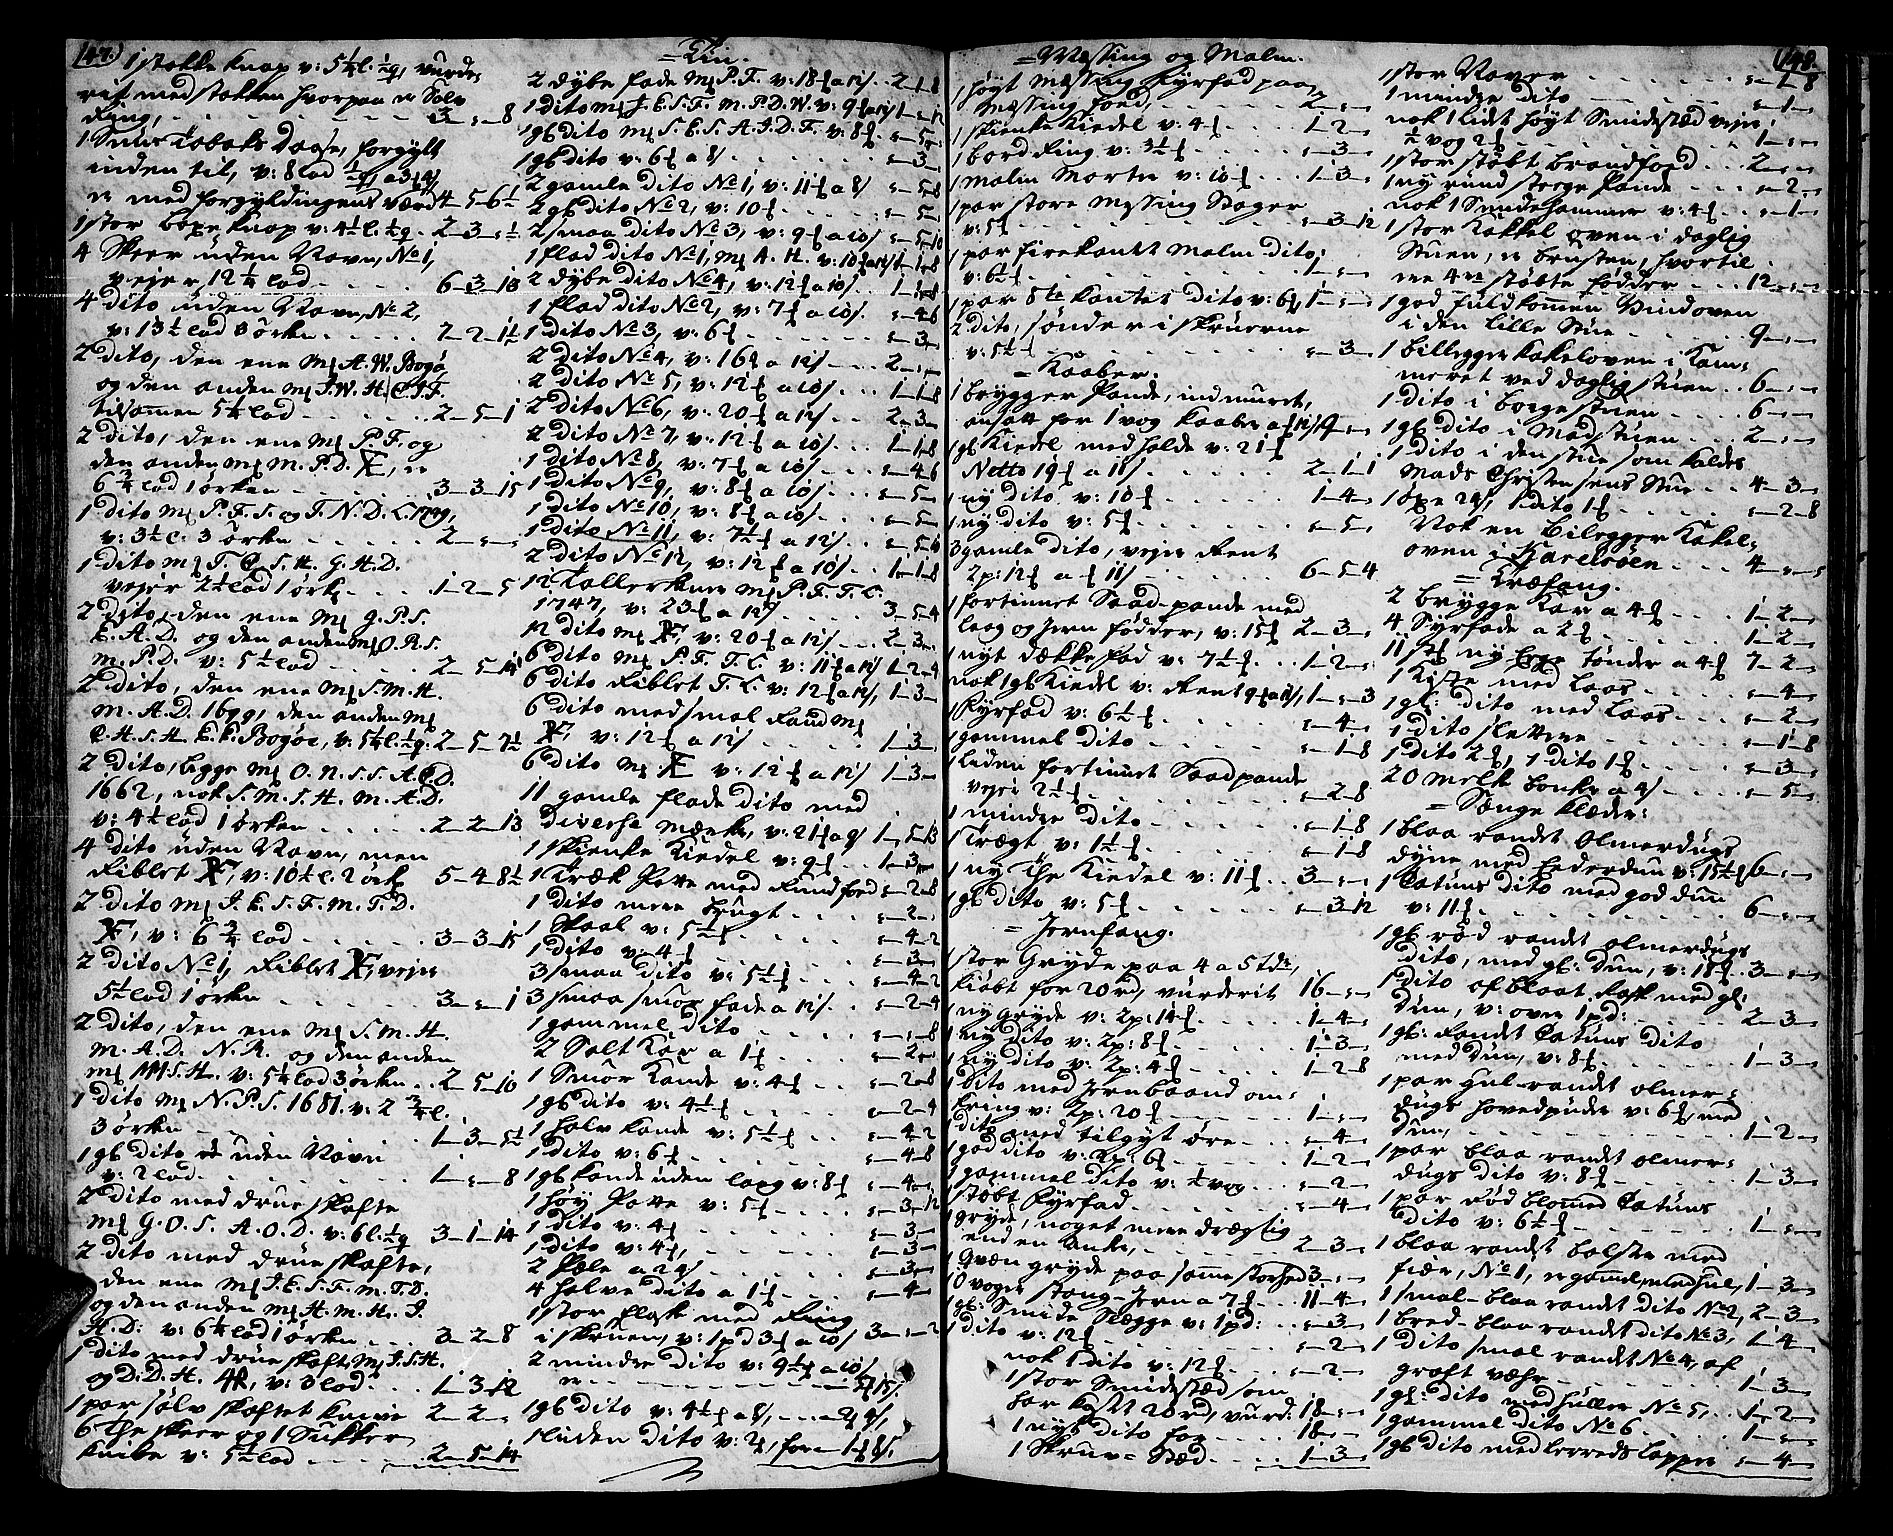 147.) 1 stokke Knap v: 5¼ l. ½ q, vurde-
ret med stokken hvorpaa er Sølv
Ring, 3 - „ - 8
1 Snus Tobaks Daase, forgylt
inden til, v: 8 lod ½ q, a 3
er med forgyldingens værd 4 - 5 - 6½
1 stor Knap v: 4½ l. ½ q. 2 - 3 - „ ½
4 Skeer uden Navn, No 1,
vejer 12¼ lod 6 - 3 - 10
4 dito uden Navn, No 2,
v: 13½ lod 3 ørken
2 dito, den ene M A. W. Bogø
og den anden M J. W. H. C. J. F.
tilsammen 5¼ lod 2 - 5 - 1
2 dito, den ene M P. F. og
den anden M M. P. D. er
6¾ lod 1 ørken 3 - 3 - 15
1 dito M P. F. S. og T. N. D. L. 1749,
v: 3½ l: 3 ørken 2 - „ - „
1 dito M T. C. S. H. G. H. D.
vejer 2½ lod 1 ørk 1 - 2 - 5
2 dito, den ene M G. P. S.
E. A. D. og den anden M O. R. S.
M. P. D. v: 5½ lod 2 - 5 - 14
2 dito, den ene M S. M. H.
M. A. D. 1699, den anden M
C. H. S. H. E. E. Bogøe, v: 5¼ l. ½ q. 2 - 5 - 7½
2 dito, begge M O. N. S. S. A. C. D.
1662, nok S. M. S. H. M. A. D.
v: 4½ lod 1 ørken 2 - 2 - 13
4 dito uden Navn, men
Riblet v: 10½ l. 2 ørk 5 - 4 - 8½
2 dito M J. E. S. F. M. T. D.
v: 6¾ lod 3 - 3 - 15
2 dito No 1, Riblet vejer
5½ lod 1 ørken 3 - „ - 1
2 dito, den ene M S. M. H.
M. A. D. N. R. og den anden
M M. S. H. v: 5¼ lod 3 ørken 2 - 5 - 10
1 dito M N. P. S. 1681. v: 2¾ l.
3 ørken 1 - 3 - 5½
1 gl dito uden Navn
v: 2 lod 1 - „ - 8
2 dito med drue skafte
M G. O. S. A. O. D. v: 6 l. ½ q 3 - 1 - 14
2 dito med drue skafte,
den ene M J. E. S. F. M. T. D.
og den anden M H. M. H. J.
H. D: v: 6¼ lod 1 ørken 3 - 2 - 8
1 dito med drue skaft M J. S. H.
og D. D. H. v: 3 lod 1 - 3 - 12
1 par sølv skaftet knive 2 - 2 - „
6 The skeer og 1 Sukker
knibe v: 5½ lod 2 - 5 - 14
= Tin.
2 dybe fade M P. F. v: 18 a 12/ 2 - 1 - 8
1 dito M J. E. S. F. M. P. D. W. v: 9 a 12/ 1 - „ - 12
1 gl dito M S. E. S. A. J. D. F. v: 8 „ - 5 - „
1 gl dito v: 6 a 8/ „ - 3 - „
2 gamle dito No 1, v: 11 a 8/ „ - 5 - 8
2 gl dito No 2, v: 10 „ - 5 - „
2 smaa dito No 3, v: 9 a 10/ „ - 5 - 10
1 flad dito No 1, M A. H. v: 10 a 12/ 1 - 1 - 8
2 dybe dito No 4, v: 12 a 10/ 1 - 1 - 8
1 flad dito No 2, v: 7 a 10/ „ - 4 - 6
1 dito No 3, v: 6 „ - 3 - „
2 dito No 4, v: 16 a 12/ 2 - „ - „
2 dito No 5, v: 12 a 10/ 1 - 1 - 8
2 dito No 6, v: 20 a 12/ 2 - 3 - „
2 dito No 7, v: 12 a 10/ 1 - 1 - 8
1 dito No 8, v: 7 a 10/ „ - 4 - 6
1 dito No 9, v: 8 a 10/ „ - 5 - „
1 dito No 10, v: 8 a 10/ „ - 5 - „
1 dito No 11, v: 7½ a 12/ „ - 5 - 6
2 dito No 12, v: 12 a 10/ 1 - 1 - 8
12 Tallerkner M P. F. T. C.
1747, v: 23 a 12/ 3 - 5 - 4
12 dito M v: 20 a 12/ 2 - 3 - „
6 dito M P. F. T. C. v: 11 a 12/ 1 - 2 - 4
6 dito Riblet T. C. v: 12 a 12/, 1 - 3 - „
6 dito med smal Rand M
v: 12 a 12/ 1 - 3 - „
6 dito M v: 12 a 12/ 1 - 3 - „
11 gamle flade dito med
diverse mærke, v: 21 a 9/ 1 - 5 - 13
1 skienke Kiedel v: 9 1 - 3 - „
1 Træk Potte med Rund fod „ - 2 - 8
1 dito mere brugt „ - 2 - „
1 Skaal v: 5½ „ - 4 - 2
1 dito v: 4 „ - 3 - „
3 smaa dito v: 5½ „ - 4 - 2
3 smaa smør fade a 12/ „ - 2 - 4
1 gammel dito „ - „ - 8
2 Salt Kar a 1 „ - 2 - „
1 Smør Kande v: 4 „ - 2 - 8
1 gl dito v: 4½ „ - 2 - 4
1 halv Kande v: 5½ „ - 4 - 2
1 dito v: 6 „ - 4 - 8
1 gl Kande uden laag v: 8 „ - 4 - „
1 høy Potte v: 5 „ - 3 - 12
1 dito v: 4 „ - 3 - „
1 dito v: 4, „ - 3 - „
2 Pæle a 24/ „ - 3 - „
4 halve dito a 1 „ - 4 - „
1 stor flaske med Ring
i skruen, v: 1 pd 3 a 10/ 3 - „ - 2
2 mindre dito v: 9½ a 10/
er
1 gl dito v: 4½ a 8/,
1 liden dito v: 2, for
= Messing og Malm.
1 høyt Messing Fyrfad paa
Messing foed, 2 - „ - „
1 skienke Kiedel v: 4 1 - 2 - „
1 bord Ring v: 3½ „ - 3 - „
1 malm Morter v: 10 1 - 3 - „
1 par store Messing Stager
v: 5 „ - 3 - 12
1 par firekantet Malm dito;
v: 6½ 1 - „ - „
1 par 8te kantet dito v: 6, 1 - „ - „
2 dito, sønder i skruerne
v: 5½ „ - 3 - „
= Kaaber.
1 brygger Pande, indmuret,
ansatt for 1 vog Kaaber a 12/, 9 - „ - „
1 gl Kiedel med holde v: 21
Netto 19 a 11/ 2 - 1 - 1
1 ny dito v: 10 1 - 4 - „
1 ny dito v: 5 „ - 5 - „
3 gamle dito, vejer Rent
2 p: 12 a 11/ 6 - 5 - 4
1 fortinnet Saad-pande med
laag og Jern fødder, v: 15 2 - 3 - „
1 nyt dække fad v: 7½ 1 - 2 - „
nok 1 gl Kiedel v: Rent 9 a 12/, 1 - „ - 3
1 Fyrfad v: 6½ „ - 4 - „
1 gammel dito „ - 1 - 8
1 liden fortinnet Saad pande
vejer 2½ „ - 2 - 8
1 mindre dito „ - 1 - 8
1 Trægt, v: 1½ „ - 1 - 8
1 ny The Kiedel v: 11 3 - „ - „
1 gl dito v: 5 „ - 3 - 12
= Jernfang.
1 stor Gryde paa 4 a 5 tdr,
kiøbt for 20 rd, vurderet 16 - „ - „
1 ny gryde v: 2 p: 14 1 - 4 - „
1 ny dito v: 2 p: 8 1 - 3 - „
1 ny dito v: 2 p: 4 1 - 2 - 8
1 dito med Jernbaand om-
kring v: 2 p: 20 1 - „ - „
1 dito med tilgyt øre „ - 4 - „
1 god dito v: 2 p: 6 1 - 2 - „
1 gammel dito v: ½ vog „ - 2 - „
1 støbt Fyrfad „ - 4 - „
1 gryde, noget mere drægtig
end en Anker, 2 - 3 - „
1 Græn gryde paa samme storhed 3 - „ - „
10 voger stang-Jern a 7 11 - 4 - „
1 gl: Smide Slægge v: 1 pd: „ - 3 - „
1 dito v: 12 „ - 2 - „
nok 1 dito v: 12 „ - 2 - „
1 stor Smidestæd som
har kost 20 rd, vurd: 18 - „ - „
1 nyt dito for 18 - „ - „
1 Skrue-Stæd 1 - 3 - „
148.
1 stor Naver „ - 1 - 8
1 mindre dito „ - 1 - „
nok 1 lidt høyt Smidestæd vejer
½ vog 2 1 - „ - „
1 stor støbt brandfoed 2 - „ - „
1 ny rund stege Pande „ - 2 - „
nok 1 Smidehammer v: 4 „ - 1 - „
1 stor Kakkel oven i daglig
Stuen, er brusten, hvortil
er 4re støbte fødder 12 - „ - „
1 god fuldkommen Vindoven
i den lille Stue 9 - „ - „
1 billegger Kakeloven i Kam-
meret ved daglig stuen 6 - „ - „
1 dito i borgestuen 6 - „ - „
1 gl dito i Madstuen 2 - „ - „
1 dito i den stue som kaldes
Mads Christensens Stue 4 - 3 - „
1 øxe 24/, 1 dito 1 „ - 2 - 8
Nok en Bilegger Kakel-
oven i Karelsøen 4 - „ - „
= Træfang.
2 brygge Kar a 4 1 - 2 - „
4 Syrfade a 2 1 - 2 - „
11 st ny tønder a 4 7 - 2 - „
1 Kiste med laas „ - 4 - „
1 gl: dito med laas „ - 2 - „
1 dito slettere „ - 1 - 8
1 dito 2, 1 dito 1 „ - 3 - „
20 Melk bonker a 4/ „ - 5 - „
= Senge Klæder:
1 blaa randet Olmerdugs
dyne med Ederdun v: 15½ 6 - „ - „
1 Catuns dito med god dun
v: 11 6 - „ - „
1 gl rød randet olmerdugs
dito, med gl: Dun, v: 18 3 - „ - „
1 dito af blaat Rask med gl:
dun, v: over 1 pd: 2 - 3 - „
1 gl: Randet Catuns dito
med dun, v: 8 1 - 3 - „
1 par Gul-randet olmer-
dugs hovedpuder v: 6, med
dun, 1 - 2 - „
1 par blaa randet olmer-
dugs dito v: 8 1 - 3 - „
1 par Rød blommed Catuns
dito v: 6½ 1 - „ - „
1 blaa randet bolster med
fiær, No 1, er gammel, med hul, 1 - 3 - „
1 smal-blaa randet dito No 2, 2 - 3 - „
1 bred-blaa randet dito No 3, 1 - 4 - „
1 dito smal randet No 4, af
groft væhr 1 - 3 - „
1 gl: dito med huller No 5, 1 - 2 - „
1 gammel dito No 6 1 - „ - „
1 gl dito med lerreds lapper „ - 4 - „